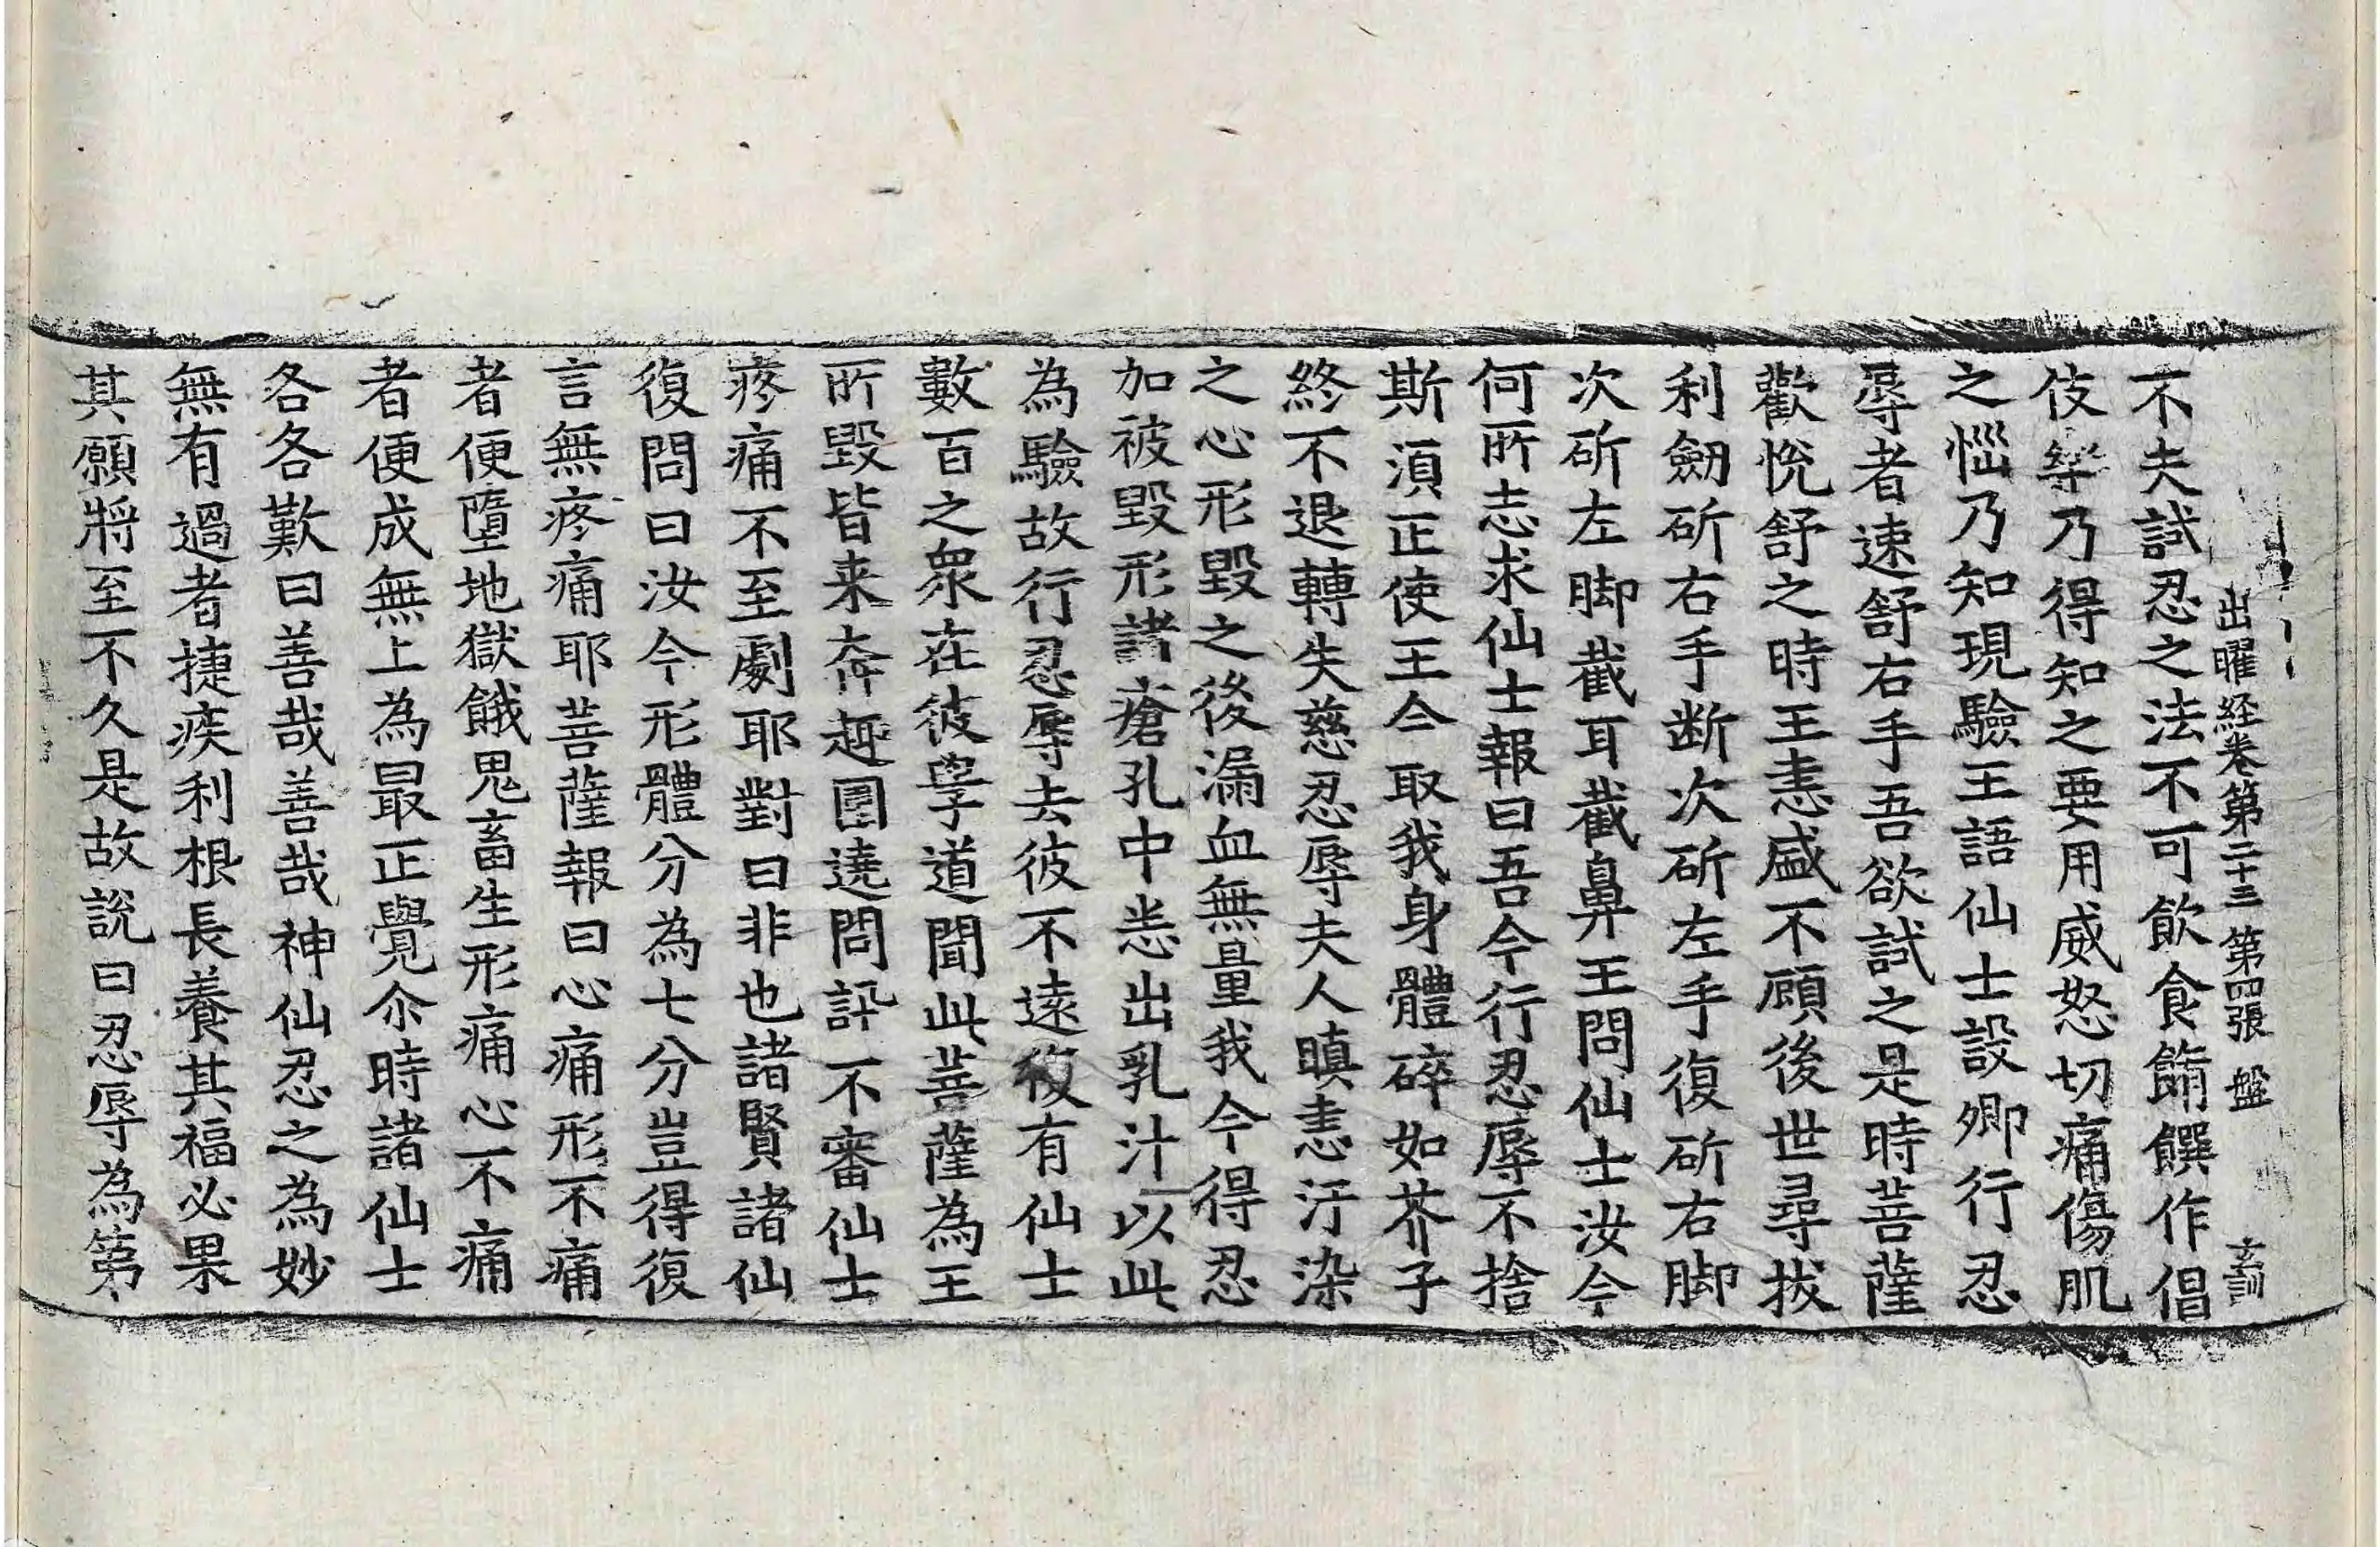 出曜経卷第二十三 第四張 盤 玄訓
不夫試忍之法不可飲食餚饌作倡
伎樂乃得知之要用威怒切痛傷肌
之惱乃知現驗王語仙士設卿行忍
辱者速舒右手吾欲試之是時菩薩
歡恱舒之時王恚盛不顧後世尋拔
利劒斫右手断次斫左手復斫右脚
次斫左脚截耳截鼻王問仙士汝今
何所志求仙士報曰吾今行忍辱不捨
斯湏正使王今取我身體碎如芥子
終不退轉失慈忍辱夫人瞋恚汙染
之心形毀之後漏血無量我今得忍
加被毀形諸瘡孔中悉出乳汁以此
為驗故行忍辱去彼不遠復有仙士
數百之衆在彼學道聞此菩薩為王
所毀皆来奔趣圍遶問訊不審仙士
疼痛不至劇耶對曰非也諸賢諸仙
復問曰汝今形體分為七分豈得復
言無疼痛耶菩薩報曰心痛形不痛
者便墮地獄餓鬼畜生形痛心不痛
者便成無上為最正覺尒時諸仙士
各各歎曰善哉善哉神仙忍之為妙
無有過者捷疾利根長養其福必果
其願將至不久是故說曰忍辱為第